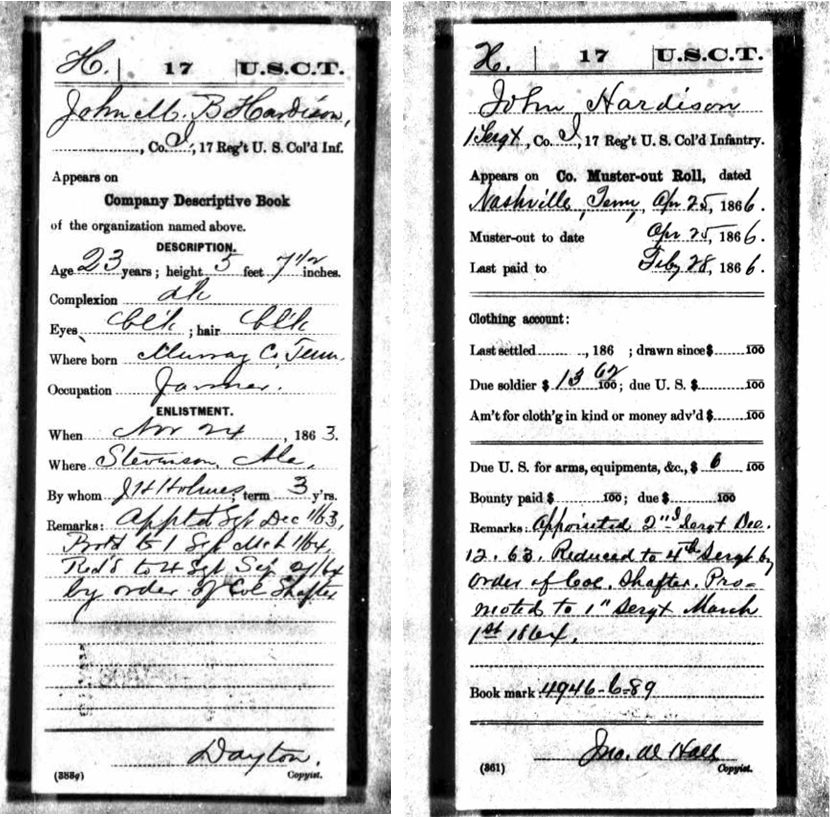 H. | 17 | U.S.C.T.
John M. B Hardison,
, Co. I, 17 Reg't U. S. Col'd Inf.
Appears on
Company Descriptive Book
of the organization named above.
DESCRIPTION.
Age 23 years; height 5 feet 7 1/2 inches.
Complexion dk
Eyes blk; hair blk
Where born Murray Co, Tenn.
Occupation Farmer.
ENLISTMENT.
When Nov 24, 1863.
Where Stevenson, Ala,
By whom J H Holmes; term 3 y'rs.
Remarks: Apptd Sgt Dec 1/63,
to 1 Sgt Mch 1/64
Red'd to 4 Sgt
by order of Col Shafter
Dayton,
(383g) Copyist.
H. | 17 | U.S.C.T.
John Hardison
1 Sergt, Co. I, 17 Reg't U. S. Col'd Infantry.
Appears on Co. Muster-out Roll, dated
Nashville, Tenn, Apr 25, 1866.
Muster-out to date Apr 25, 1866.
Last paid to Feby 28, 1866.
Clothing account:
Last settled , 186 ; drawn since $ 100
Due soldier $ 13 62 100; due U. S. $ 100
Am't for cloth'g in kind or money adv'd $ 100
Due U. S. for arms, equipments, &c., $ 6 100
Bounty paid $ 100; due $ 100
Remarks: Appointed 2"d Sergt Dec.
12. 63. Reduced to 4th Sergt by
order of Col. Shafter. Pro=
moted to 1" Sergt March
1st 1864.
Book mark 4946-6-89
Jno. W Hall
(361) Copyist.